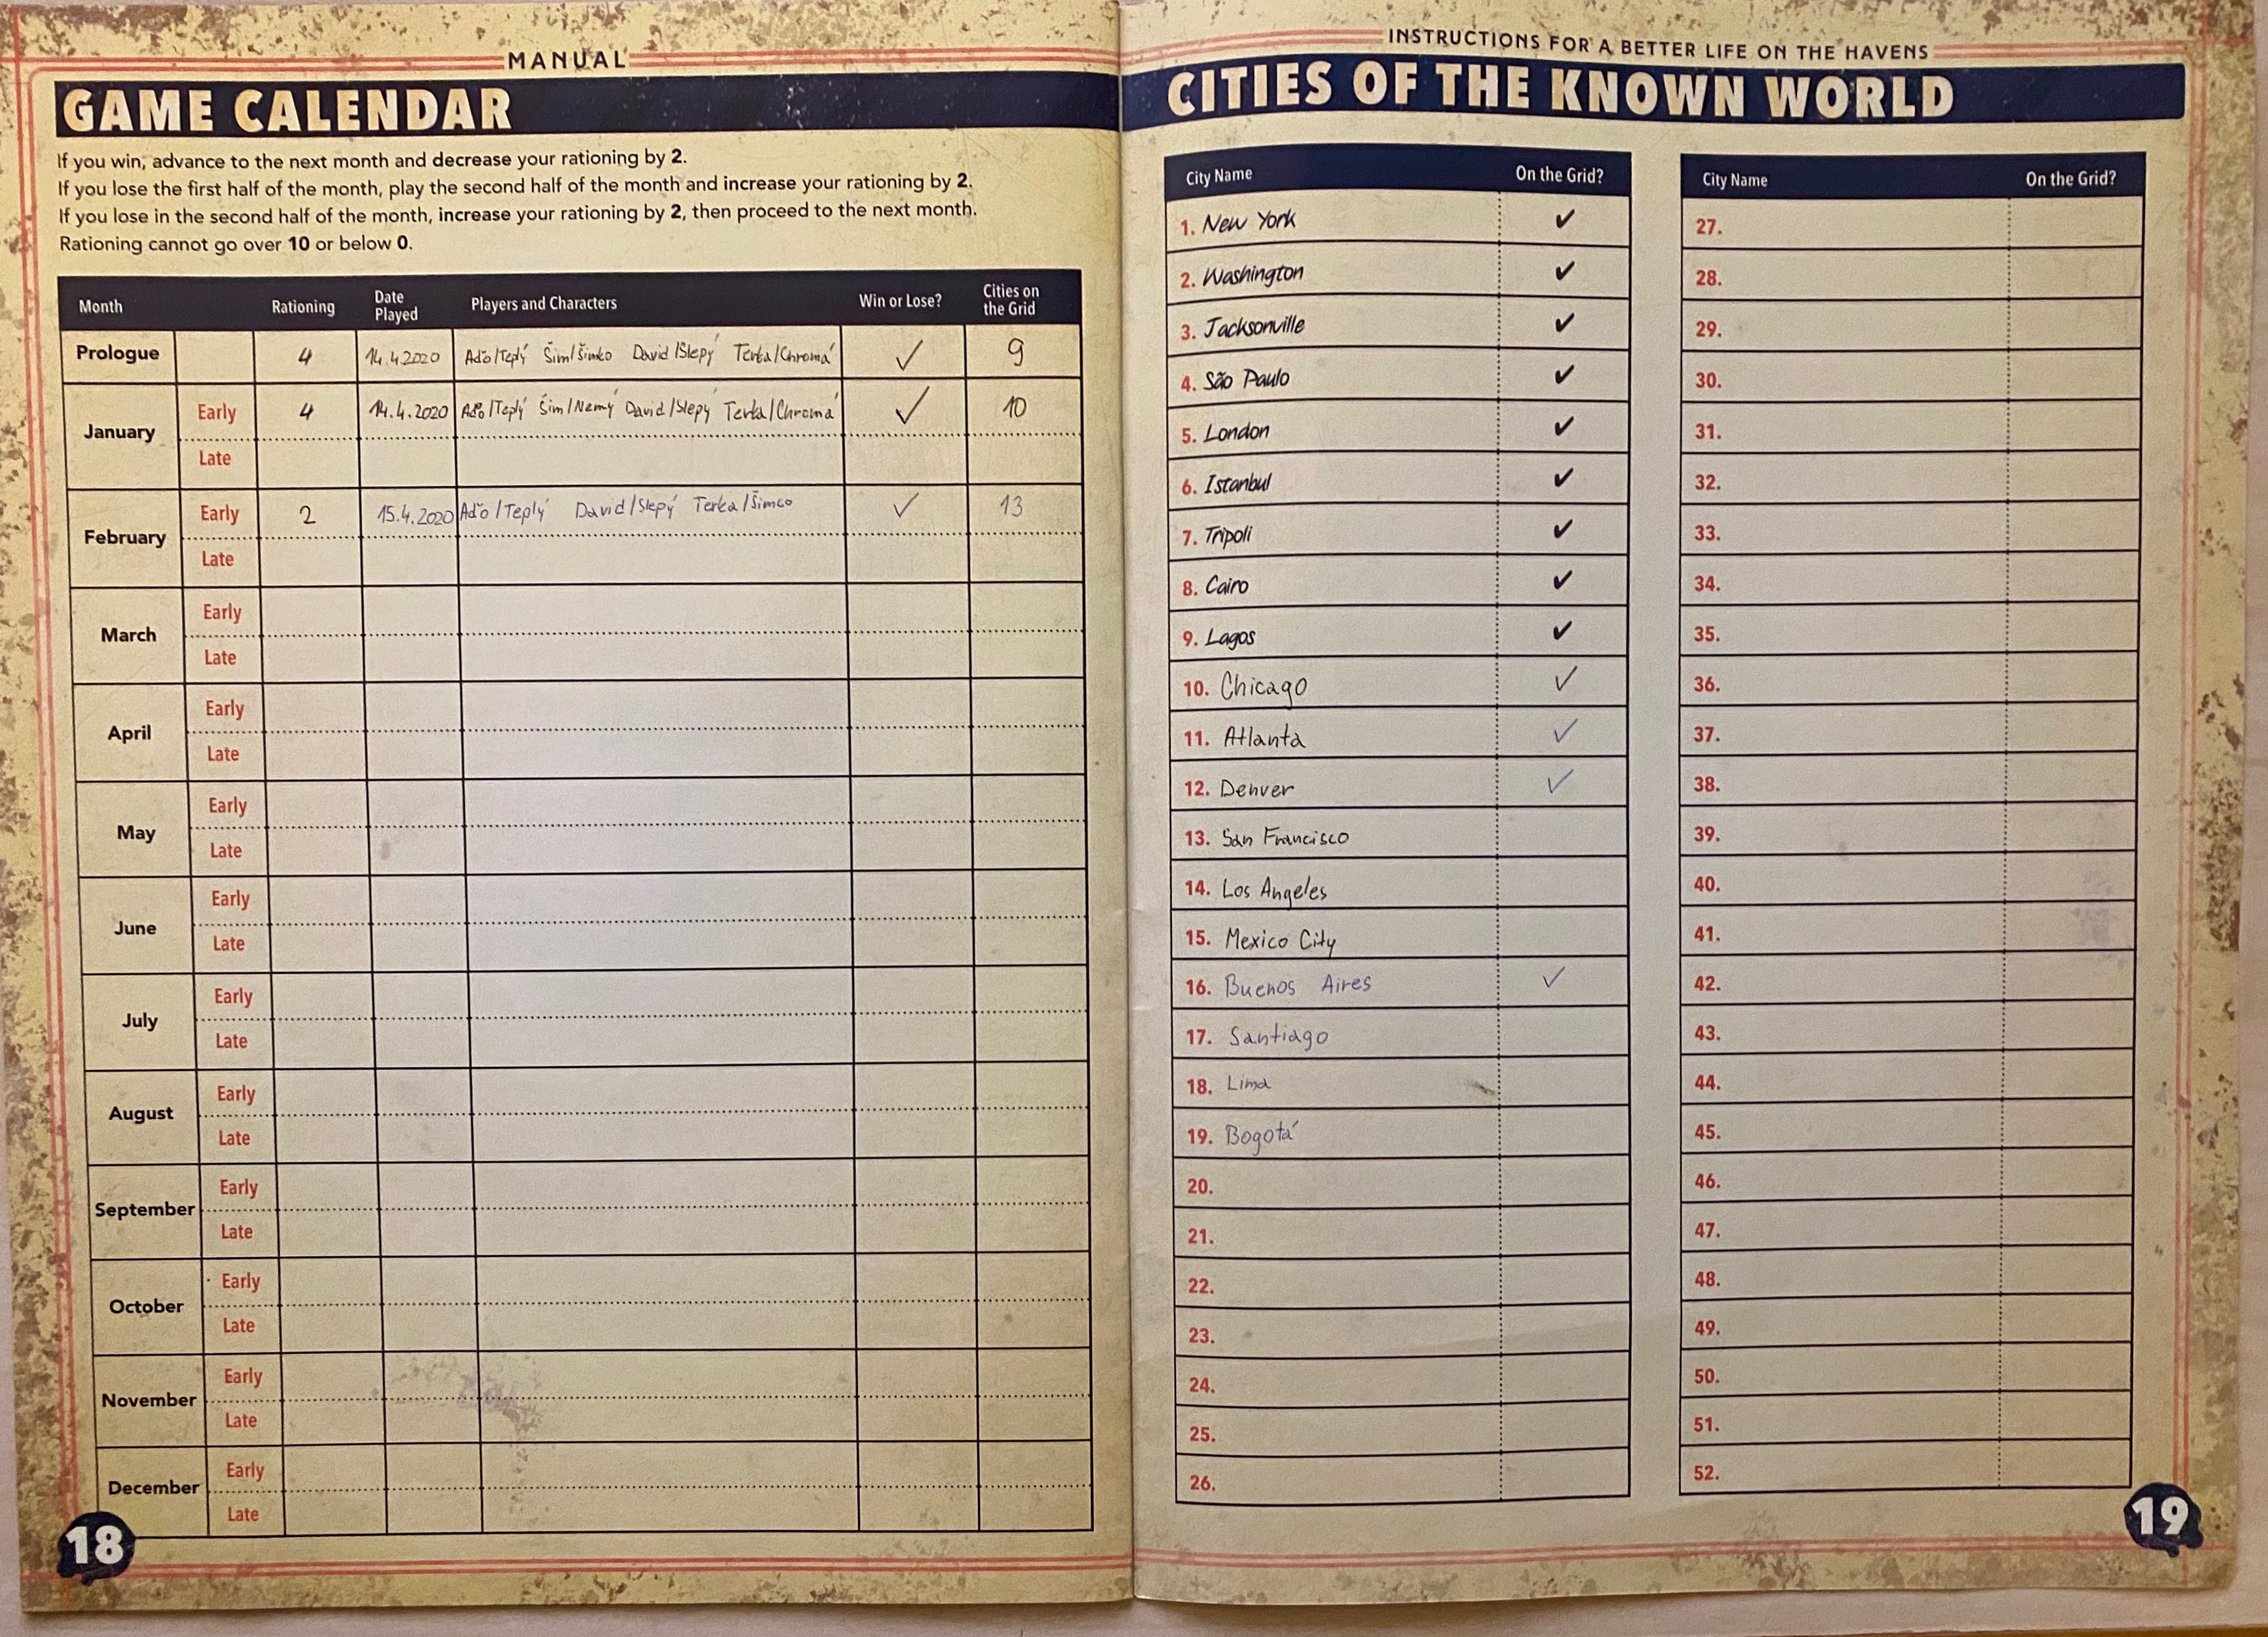 MANUAL
GAME CALENDAR
If you win, advance to the next month and decrease your rationing by 2.
If you lose the first half of the month, play the second half of the month and increase your rationing by 2.
If you lose in the second half of the month, increase your rationing by 2, then proceed to the next month.
Rationing cannot go over 10 or below 0.
Month Rationing Date Played Players and Characters Win or Lose? Cities on the Grid
Prologue 4 14.4.2020 Aďo/Teplý Šim/Šimko David/Slepý Terka/Chromá ✓ 9
January Early 4 14.4.2020 Aďo/Teplý Šim/Nemý David/Slepý Terka/Chromá ✓ 10
Late
February Early 2 15.4.2020 Aďo/Teplý David/Slepý Terka/Šimco ✓ 13
Late
March Early
Late
April Early
Late
May Early
Late
June Early
Late
July Early
Late
August Early
Late
September Early
Late
October Early
Late
November Early
Late
December Early
Late
18
INSTRUCTIONS FOR A BETTER LIFE ON THE HAVENS
CITIES OF THE KNOWN WORLD
City Name On the Grid?
1. New York ✓
2. Washington ✓
3. Jacksonville ✓
4. São Paulo ✓
5. London ✓
6. Istanbul ✓
7. Tripoli ✓
8. Cairo ✓
9. Lagos ✓
10. Chicago ✓
11. Atlanta ✓
12. Denver ✓
13. San Francisco
14. Los Angeles
15. Mexico City
16. Buenos Aires ✓
17. Santiago
18. Lima
19. Bogotá
20.
21.
22.
23.
24.
25.
26.
City Name On the Grid?
27.
28.
29.
30.
31.
32.
33.
34.
35.
36.
37.
38.
39.
40.
41.
42.
43.
44.
45.
46.
47.
48.
49.
50.
51.
52.
19